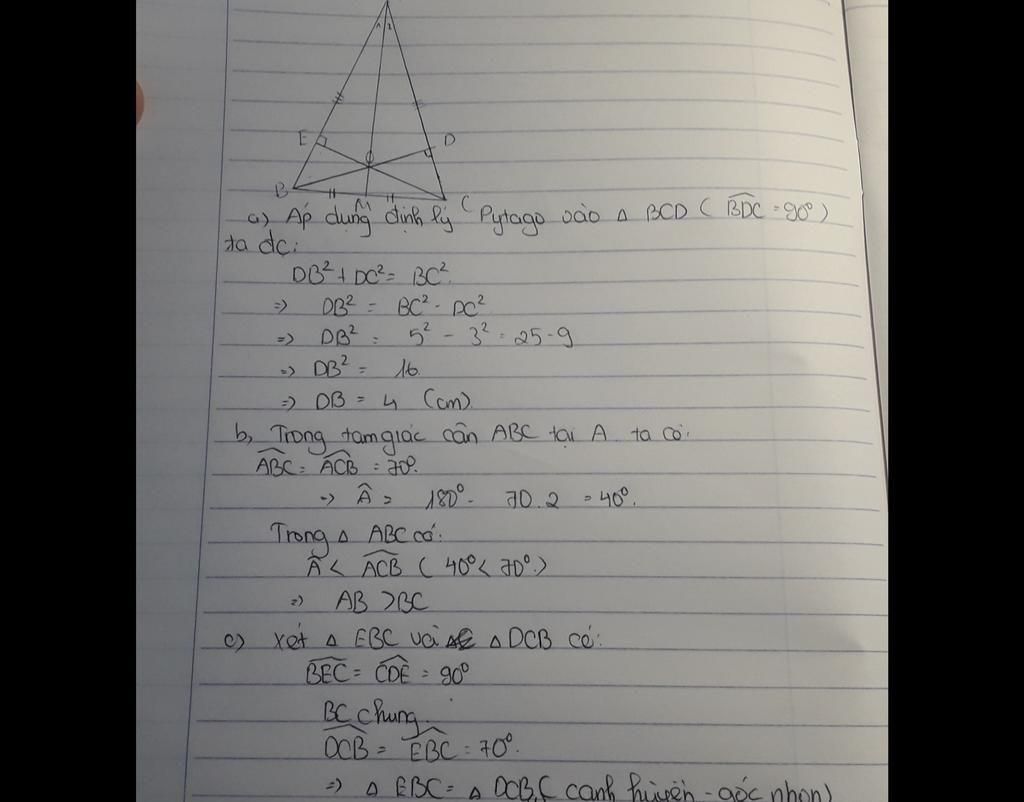 1 2
E
D
O
B
M
C
a) Áp dụng định lý Pytago vào △ BCD ( \widehat{BDC} = 90° )
ta đc:
DB² + DC² = BC²
=> DB² = BC² - DC²
=> DB² = 5² - 3² = 25 - 9
=> DB² = 16
=> DB = 4 (cm)
b, Trong tam giác cân ABC tại A ta có:
\widehat{ABC} = \widehat{ACB} = 70°.
=> Â = 180° - 70.2 = 40°.
Trong △ ABC có:
Â < \widehat{ACB} ( 40° < 70° )
=> AB > BC
c) Xét △ EBC và △ DCB có:
\widehat{BEC} = \widehat{CDE} = 90°
BC chung.
\widehat{DCB} = \widehat{EBC} = 70°.
=> △ EBC = △ DCB ( cạnh huyền - góc nhọn)